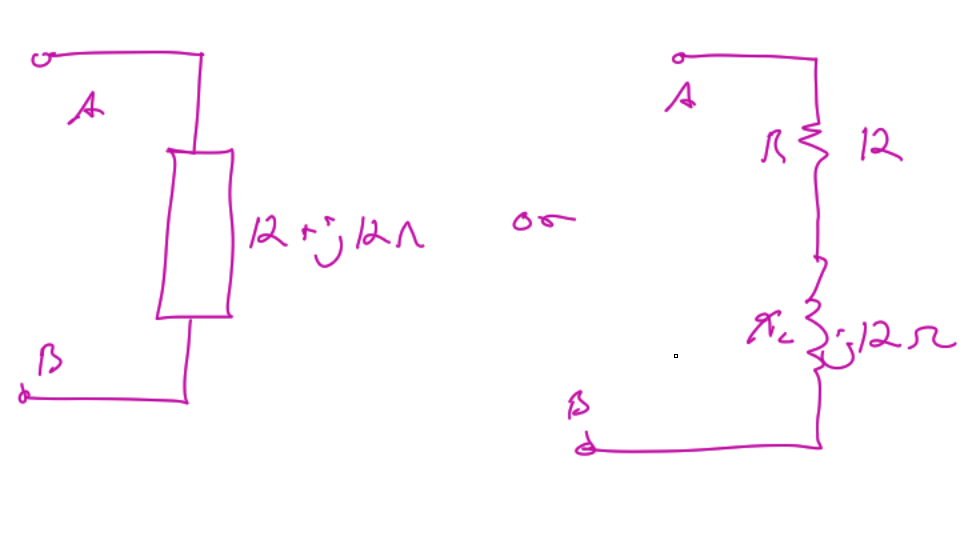 A
12 + j 12 Ω
B
or
A
R 12
X_L j 12 Ω
B